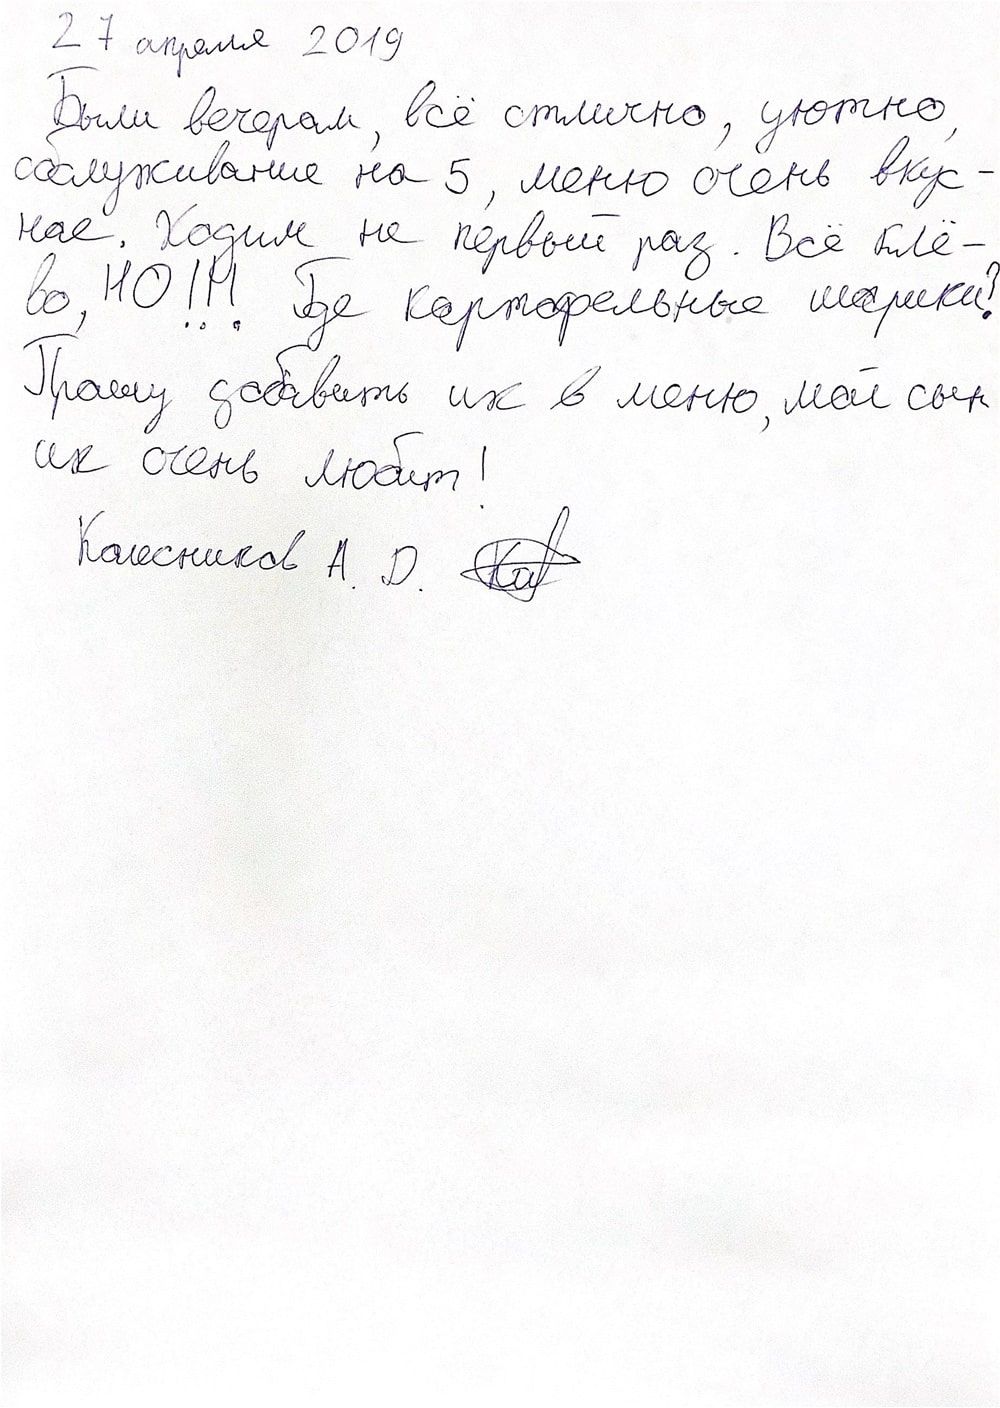 27 апреля 2019
Были вечером, всё отлично, уютно,
обслуживание на 5, меню очень вкус-
ное. Ходим не первый раз. Всё клё-
во, НО!!! Где картофельные шарики?
Прошу добавить их в меню, мой сын
их очень любит!
Колесников А. Д.